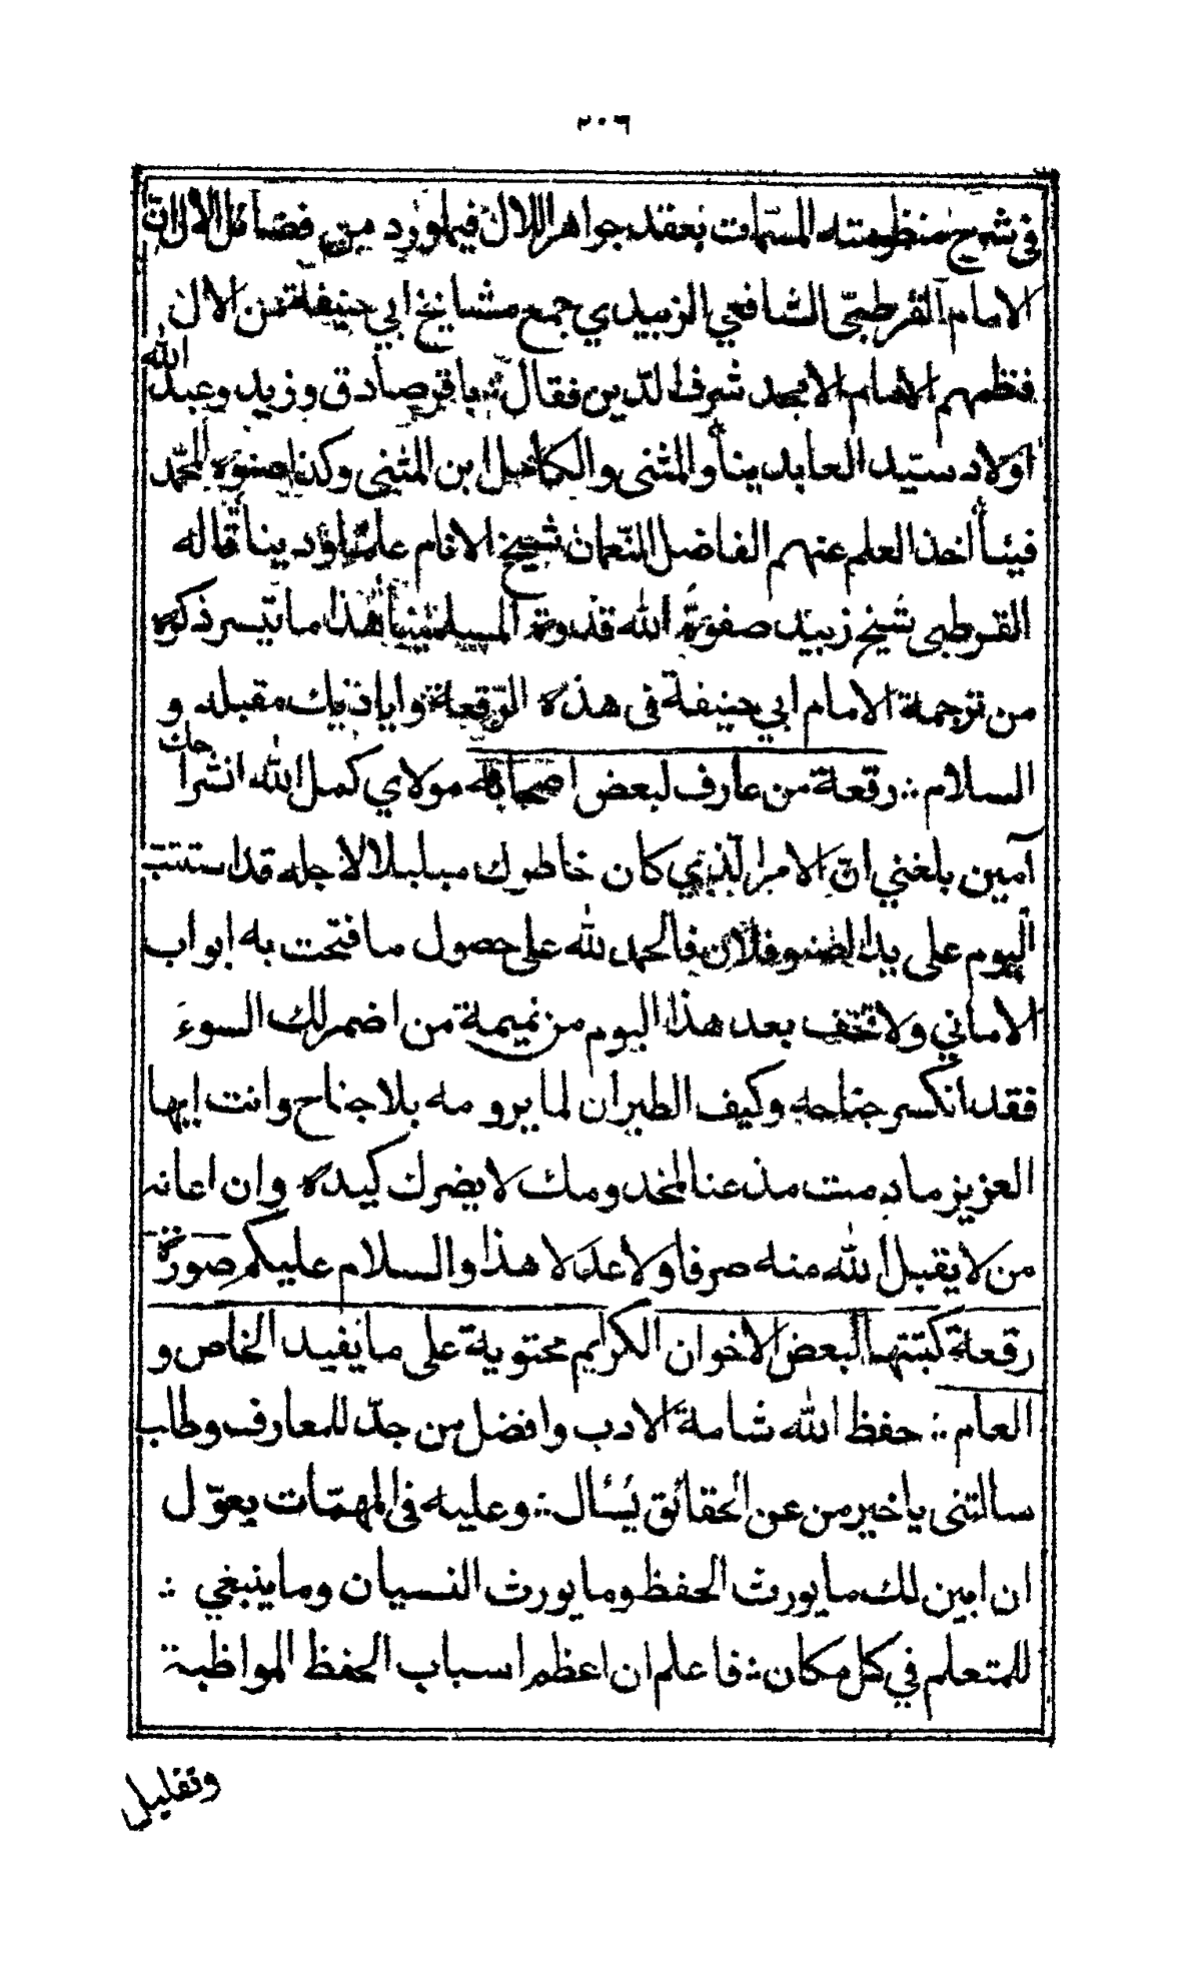 ٢٠٦
في شرح منظومته المسمات بعقد جواهر اللال فيما ورد من فضائل الال ان
الامام القرطبي الشافعي الزبيدي جمع مشايخ ابي حنيفة من الال
فنظمهم الامام الامجد شرف الدين فقال ؞ باقر صادق وزيد وعبد الله
اولاد سيد العابدينا والمثنى والكامل ابن المثنى وكذا صنوه المحمد
فينا أخذ العلم عنهم الفاضل النعمان شيخ الانام علما ودينا قاله
القرطبي شيخ زبيد صفوة الله قدوة المسلمينا هذا ما تيسر ذكره
من ترجمة الامام ابي حنيفة في هذه الرقعة واياذنيك مقبله و
السلام ؞ رقعة من عارف لبعض اصحابه مولاي كمل الله انشراحك
آمين بلغني انّ الامر الّذي كان خاطرك مبلبلا لاجله قد استتب
اليوم على يد الصنو فلان فالحمد لله على حصول ما فتحت به ابواب
الاماني ولا تخف بعد هذا اليوم من نميمة من اضمر لك السوءَ
فقد انكسر جناحه وكيف الطيران لما يرومه بلا جناح وانت ايها
العزيز ما دمت مذعنا لمخدومك لا يضرك كيده وان اعانه
من لا يقبل الله منه صرفا ولا عدلا هذا والسلام عليكم صورة
رقعة كتبتها لبعض الاخوان الكرايم محتوية على ما يفيد الخاص و
العام ؞ حفظ الله شامة الادب وافضل من جدّ للمعارف وطلب
سالتنى يا خير من عن الحقائق يُسئال ؞ وعليه فى المهمّات يعوّل
ان ابين لك ما يورث الحفظ وما يورث النسيان وما ينبغي ؞
للمتعلم في كل مكان ؞ فاعلم ان اعظم اسباب الحفظ المواظبة
وتقليل